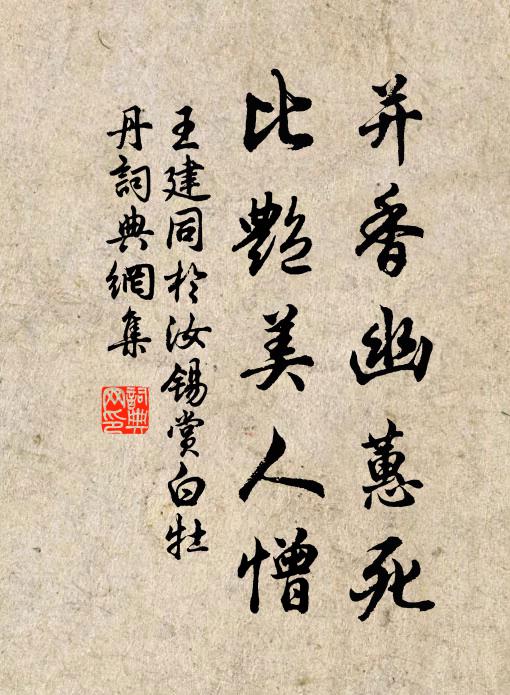 并香幽蕙死
比艷美人憎
王建同於汝锡賞白牡
丹詞典網集
詞典网印